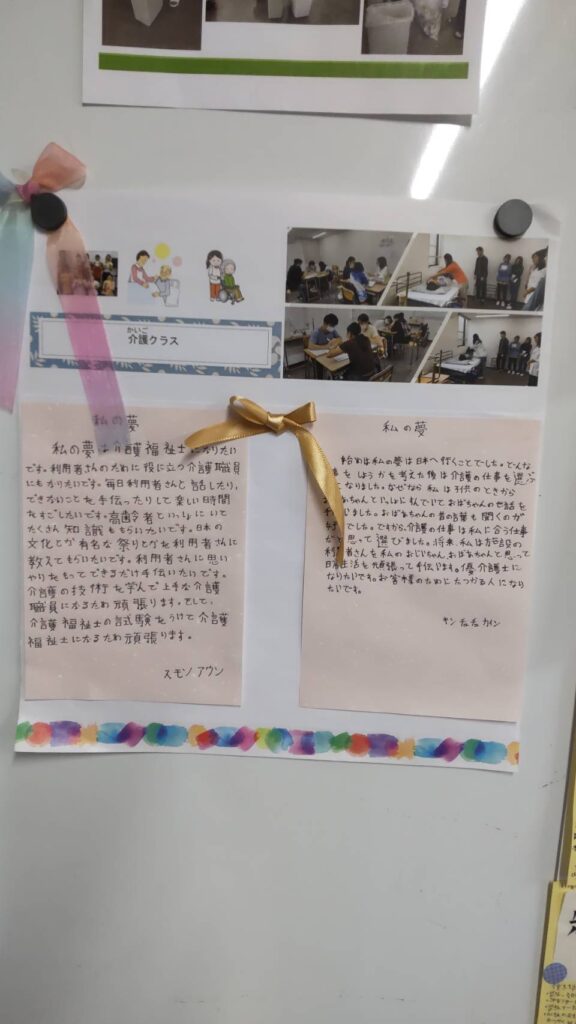 かいご
介護クラス
私の夢
私の夢は介護福祉士になりたい
です。利用者さんのために役に立つ介護職員
にもなりたいです。毎日利用者さんと話したり、
できないことを手伝ったりして楽しい時間
をすごしたいです。高齢者といっしょにいて
たくさん知識ももらいたいです。日本の
文化とか有名な祭りとかを利用者さんに
教えてもらいたいです。利用者さんに思い
やりをもってできるだけ手伝いたいです。
介護の技術を学んで上手な介護
職員になるため頑張ります。そして、
介護福祉士の試験をうけて介護
福祉士になるため頑張ります。
スモン アウン
私の夢
始めは私の夢は日本へ行くことでした。どんな
をしようかを考えた後は介護の仕事を選ぶ
なりました。なぜなら私は子供のときから
おばあちゃんといっしょに住んでいておばあちゃんの世話を
しました。おばあちゃんの昔の言葉も聞くのが
でした。ですから、介護の仕事は私に合う仕事
と思って選びました。将来、私は施設の
利用者さんを私のおじいちゃん、おばあちゃんと思って
日常生活を頑張って手伝います。介護士に
なりたいです。お客様のために
たいです。